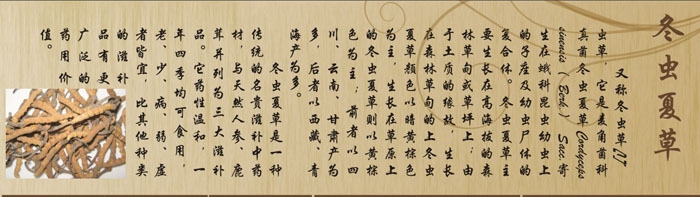 冬虫夏草
又称冬虫草
虫草，它是麦角菌科
真菌冬虫夏草 Cordyceps
sinensis (Berk.) Sacc.寄
生在蛾科昆虫幼虫上
的子座及幼虫尸体的
复合体。冬虫夏草主
要生长在高海拔的森
林草甸或草坪上；由
于土质的缘故，生长
在森林草甸的上冬虫
夏草颜色以暗黄棕色
为主，生长在草原上
的冬虫夏草则以黄棕
色为主；前者以四
川、云南、甘肃产为
多，后者以西藏、青
海产为多。
冬虫夏草是一种
传统的名贵滋补中药
材，与天然人参、鹿
茸并列为三大滋补
品。它药性温和，一
年四季均可食用，
老、少、病、弱、虚
者皆宜，比其他种类
的滋补品有更
广泛的
药用价
值。